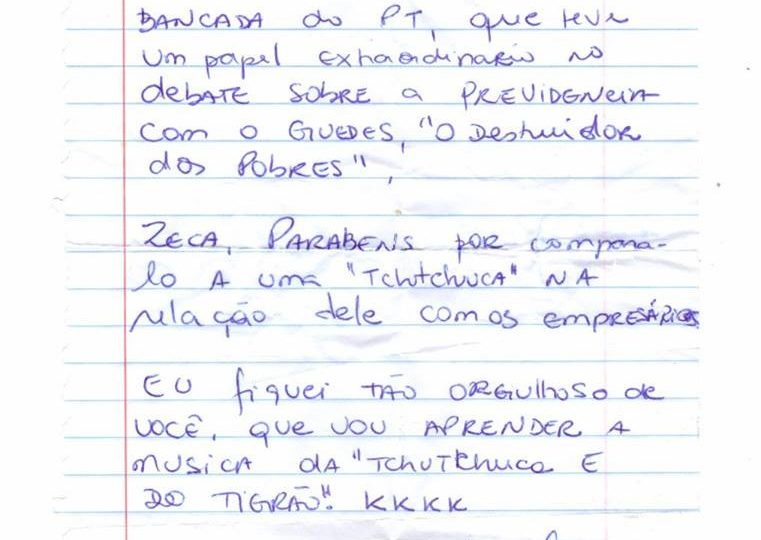 BANCADA do PT, que teve
um papel extraordinario no
debate sobre a PREVIDENCIA
com o GUEDES, "O Destruidor
dos Pobres",
ZECA, PARABENS por compara-
lo A uma "Tchutchuca" NA
relação dele com os empresários
EU fiquei TÃO ORGulhoso de
VOCÊ, que VOU APRENDER A
musica da "Tchutchuca E
DO TIGRÃO". KKKK